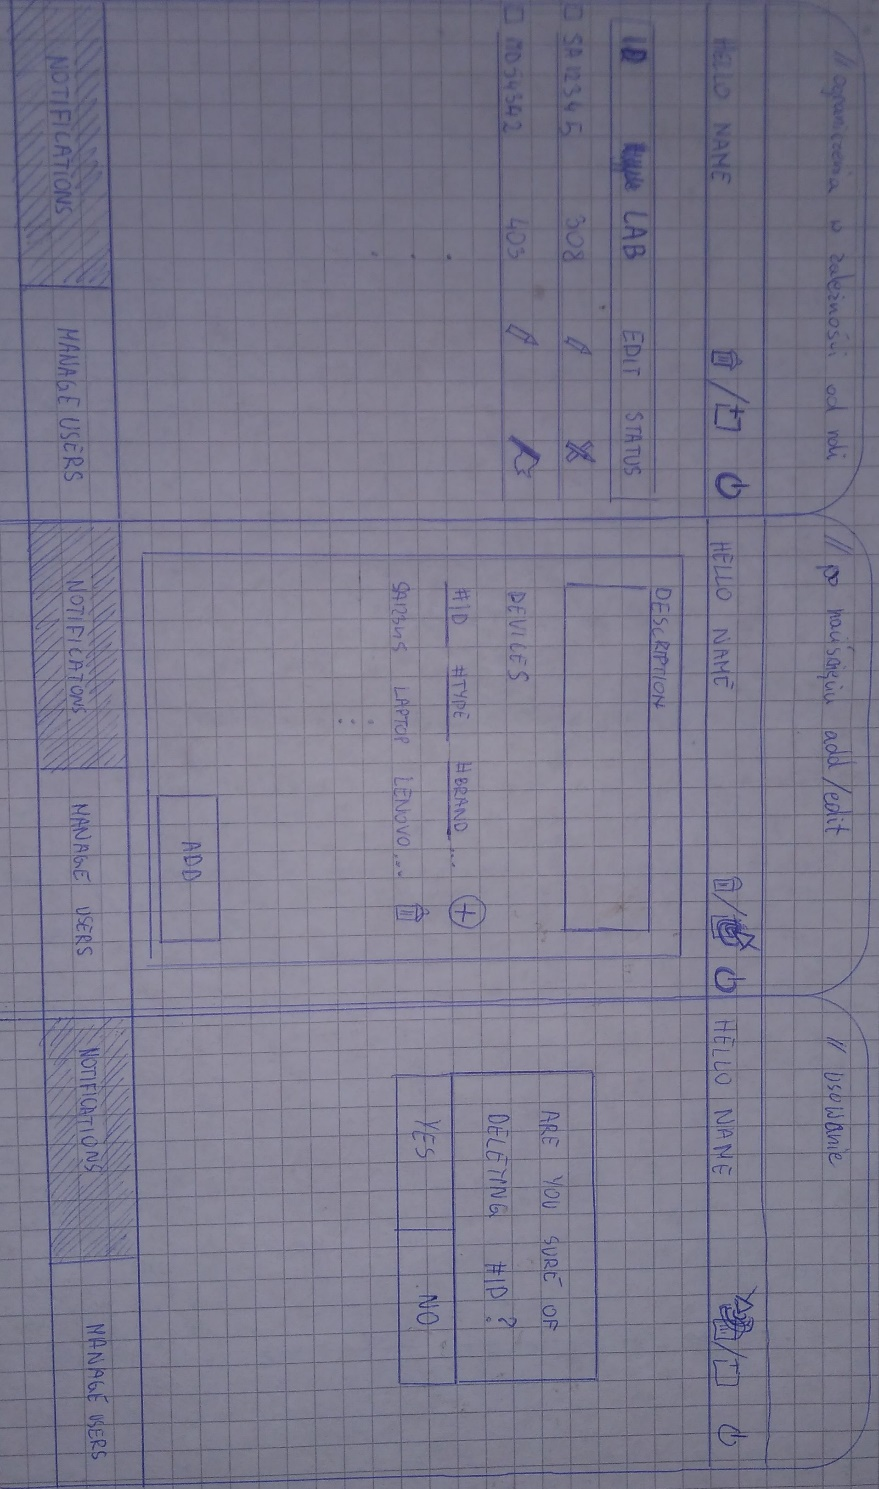 // ograniczenia w zależności od roli
HELLO NAME
ID LAB EDIT STATUS
SA12345 308
MD54342 403
NOTIFICATIONS MANAGE USERS
// po naciśnięciu add/edit
HELLO NAME
DESCRIPTION
DEVICES
#ID #TYPE #BRAND...
SA12345 LAPTOP LENOVO...
ADD
NOTIFICATIONS MANAGE USERS
// usuwanie
HELLO NAME
ARE YOU SURE OF
DELETING #ID?
YES NO
NOTIFICATIONS MANAGE USERS